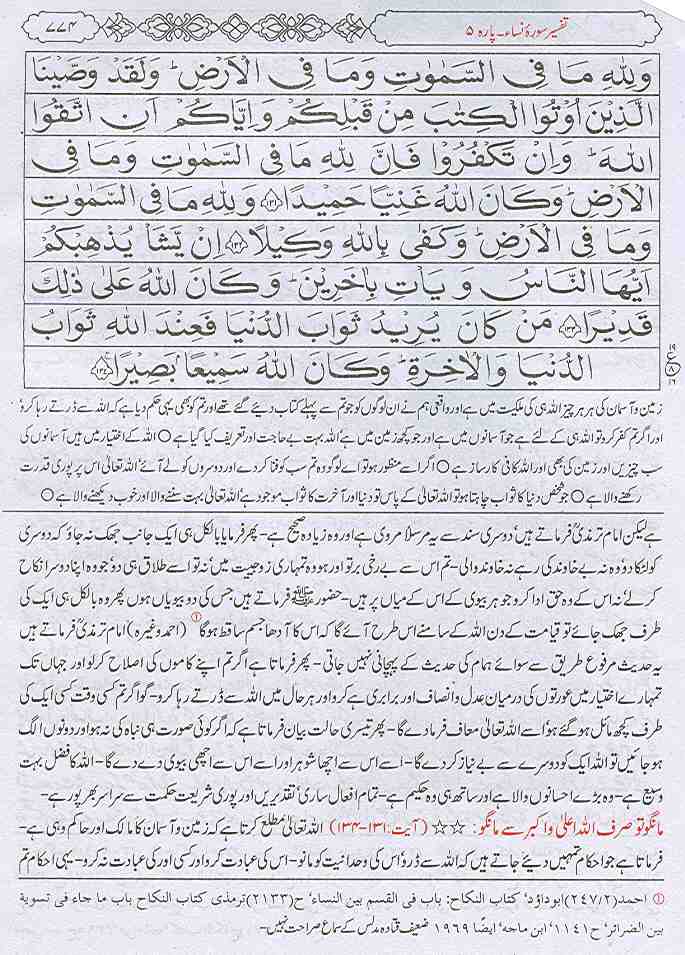 تفسیر سورۂ نساء۔ پارہ ۵
۷۷۴
وَلِلّٰهِ مَا فِى السَّمٰوٰتِ وَمَا فِى الْاَرْضِ ؕ وَلَقَدْ وَصَّيْنَا
الَّذِيْنَ اُوْتُوا الْكِتٰبَ مِنْ قَبْلِكُمْ وَاِيَّاكُمْ اَنِ اتَّقُوا
اللّٰهَ ؕ وَاِنْ تَكْفُرُوْا فَاِنَّ لِلّٰهِ مَا فِى السَّمٰوٰتِ وَمَا فِى
الْاَرْضِ ؕ وَكَانَ اللّٰهُ غَنِيًّا حَمِيْدًا ۝۱۳۱ وَلِلّٰهِ مَا فِى السَّمٰوٰتِ
وَمَا فِى الْاَرْضِ ؕ وَكَفٰى بِاللّٰهِ وَكِيْلًا ۝۱۳۲ اِنْ يَّشَاْ يُذْهِبْكُمْ
اَيُّهَا النَّاسُ وَيَاْتِ بِاٰخَرِيْنَ ؕ وَكَانَ اللّٰهُ عَلٰى ذٰلِكَ
قَدِيْرًا ۝۱۳۳ مَنْ كَانَ يُرِيْدُ ثَوَابَ الدُّنْيَا فَعِنْدَ اللّٰهِ ثَوَابُ
الدُّنْيَا وَالْاٰخِرَةِ ؕ وَكَانَ اللّٰهُ سَمِيْعًاۢ بَصِيْرًا ۝۱۳۴
۱۹ ع ۸ ۱۶
زمین و آسمان کی ہر ہر چیز اللہ ہی کی ملکیت میں ہے اور واقعی ہم نے ان لوگوں کو جو تم سے پہلے کتاب دیئے گئے تھے اور تم کو بھی یہی حکم دیا ہے کہ اللہ سے ڈرتے رہا کرو'
اور اگر تم کفر کرو تو اللہ ہی کے لئے ہے جو آسمانوں میں ہے اور جو کچھ زمین میں ہے' اللہ بہت بے حاجت اور تعریف کیا گیا ہے ○ اللہ کے اختیار میں ہیں آسمانوں کی
سب چیزیں اور زمین کی بھی اور اللہ کافی کارساز ہے ○ اگر اسے منظور ہو تو اے لوگو وہ تم سب کو فنا کر دے اور دوسروں کو لے آئے' اللہ تعالیٰ اس پر پوری قدرت
رکھنے والا ہے ○ جو شخص دنیا کا ثواب چاہتا ہو تو اللہ تعالیٰ کے پاس تو دنیا اور آخرت کا ثواب موجود ہے' اللہ تعالیٰ بہت سننے والا اور خوب دیکھنے والا ہے ○
ہے لیکن امام ترمذیؒ فرماتے ہیں' دوسری سند سے یہ مرسلاً مروی ہے اور وہ زیادہ صحیح ہے- پھر فرمایا بالکل ہی ایک جانب جھک نہ جاؤ کہ دوسری
کو لٹکا دو' وہ نہ بے خاوند کی رہے نہ خاوند والی- تم اس سے بے رخی برتو اور ہو وہ تمہاری زوجیت میں' نہ تو اسے طلاق ہی دو' جو وہ اپنا دوسرا نکاح
کر لے' نہ اس کے وہ حق ادا کرو جو ہر بیوی کے اس کے میاں پر ہیں- حضور ﷺ فرماتے ہیں' جس کی دو بیویاں ہوں پھر وہ بالکل ہی ایک کی
طرف جھک جائے تو قیامت کے دن اللہ کے سامنے اس طرح آئے گا کہ اس کا آدھا جسم ساقط ہوگا ① (احمد وغیرہ) امام ترمذیؒ فرماتے ہیں
یہ حدیث مرفوع طریق سے سوائے ہمام کی حدیث کے پہچانی نہیں جاتی- پھر فرماتا ہے اگر تم اپنے کاموں کی اصلاح کر لو اور جہاں تک
تمہارے اختیار میں ہو عورتوں کی درمیان عدل و انصاف اور برابری سے کرو اور ہر حال میں اللہ سے ڈرتے رہا کرو- گو اگر تم کسی وقت کسی ایک کی
طرف کچھ مائل ہو گئے ہو' اسے اللہ تعالیٰ معاف فرما دے گا- پھر تیسری حالت بیان فرماتا ہے کہ اگر کوئی صورت ہی نباہ کی نہ ہو اور دونوں الگ
ہو جائیں تو اللہ ایک کو دوسرے سے بے نیاز کر دے گا- اسے اس سے اچھا شوہر اور اسے اس سے اچھی بیوی دے دے گا- اللہ کا فضل بہت
وسیع ہے- وہ بڑے احسانوں والا ہے اور ساتھ ہی وہ حکیم ہے- تمام افعال' ساری تقدیریں اور پوری شریعت حکمت سے سراسر بھرپور ہے-
مانگو تو صرف اللہ اعلیٰ و اکبر سے مانگو: ☆☆ (آیت:۱۳۱-۱۳۴) اللہ تعالیٰ مطلع کرتا ہے کہ زمین و آسمان کا مالک اور حاکم وہی ہے-
فرماتا ہے جو احکام تمہیں دیئے جاتے ہیں' کہ اللہ سے ڈرو' اس کی وحدانیت کو مانو- اس کی عبادت کرو اور کسی اور کی عبادت نہ کرو- یہی احکام تم
① احمد(۲/۲۴۷) ابوداؤد' کتاب النکاح: باب فی القسم بین النساء' ح(۲۱۳۳) ترمذی کتاب النکاح باب ما جاء فی تسویة
بین الضرائر' ح۱۱۴۱' ابن ماجه' ایضًا ۱۹۶۹ ضعیف قتادہ مدلس کے سماع صراحت نہیں-